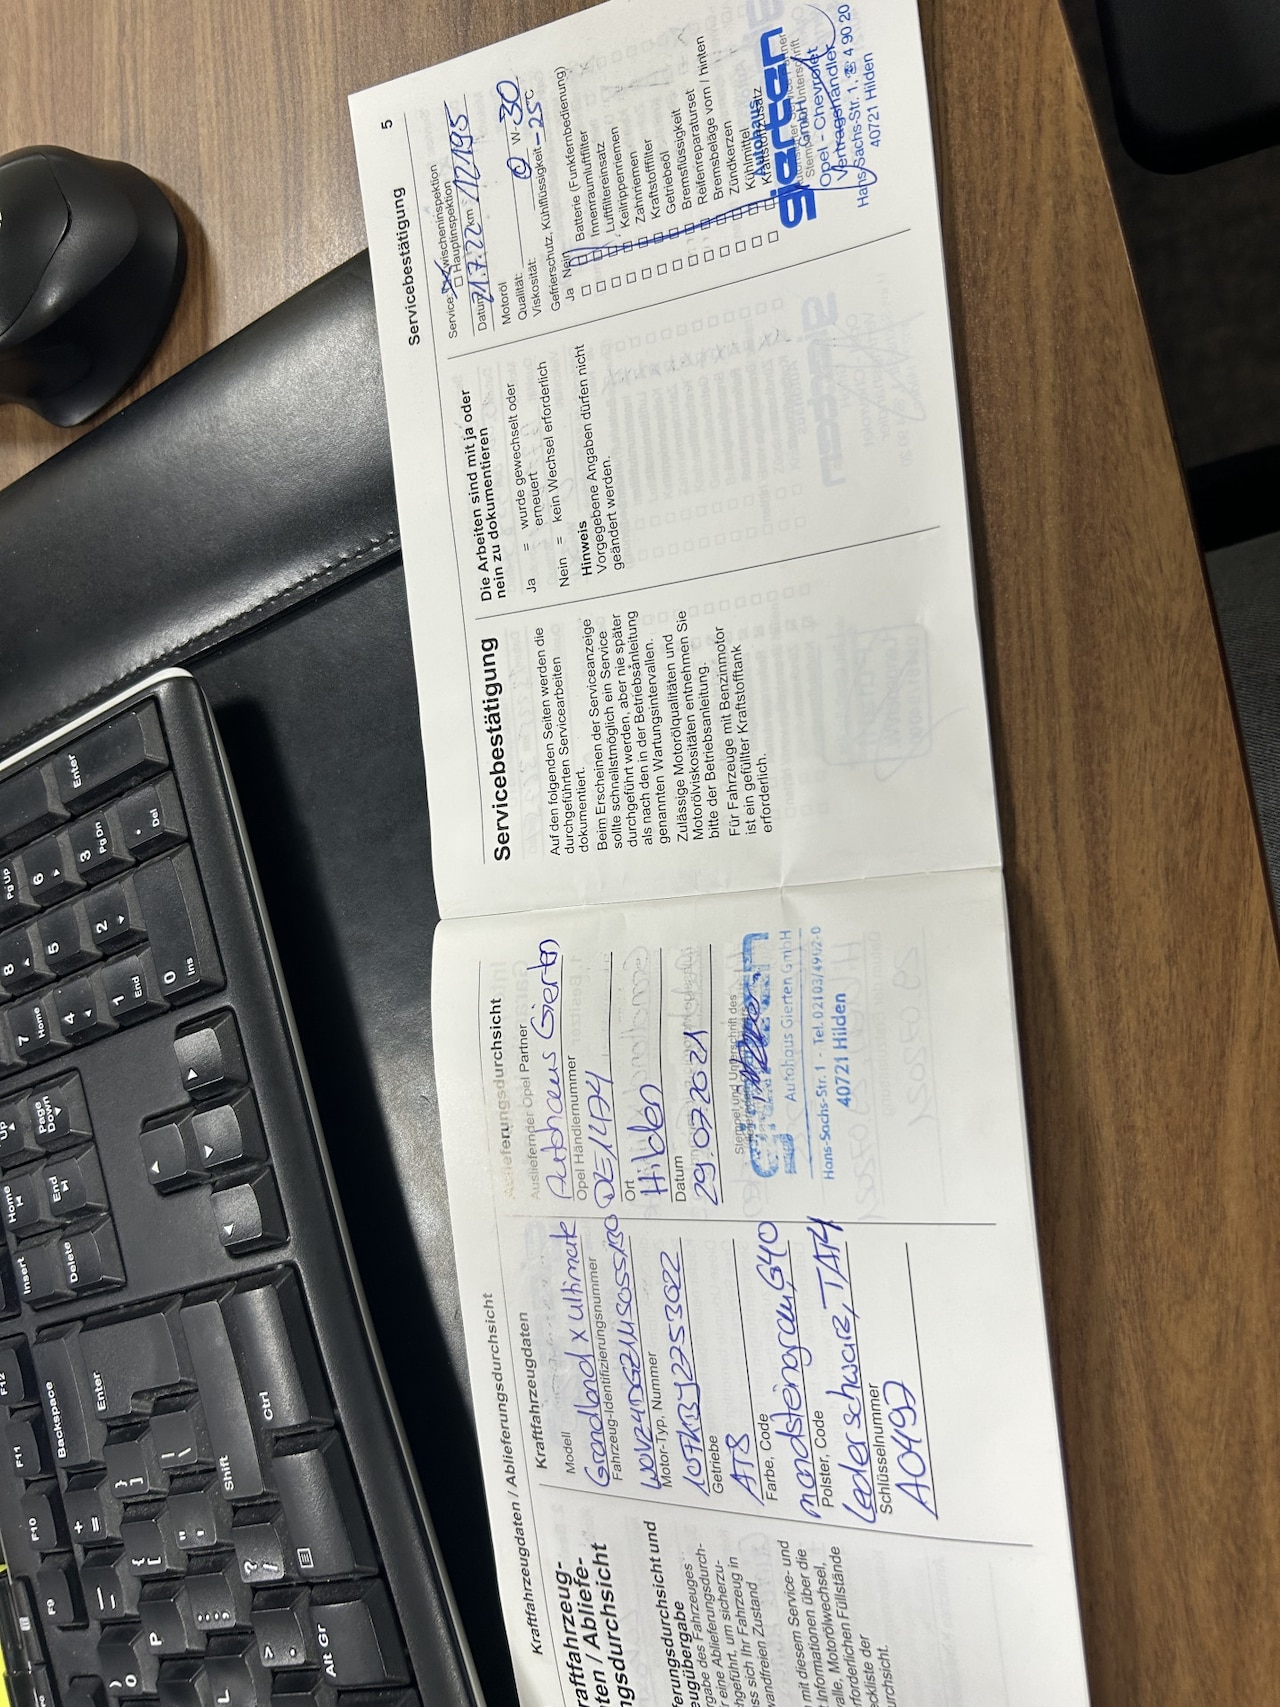 Kraftfahrzeugdaten / Ablieferungsdurchsicht
erungsdurchsicht und
mit diesem Service- und
Informationen über die
Motorölwechsel,
erforderlichen Füllstände
Kraftfahrzeugdaten / Ablieferungsdurchsicht
Kraftfahrzeugdaten
Modell
Grandland x Ultimate
Fahrzeug-Identifizierungsnummer
Motor-Typ, Nummer
Getriebe
AT8
Farbe, Code
mondsteingrau, G40
Polster, Code
Leder schwarz, TAT4
Schlüsselnummer
A0492
Ablieferungsdurchsicht
Ausliefernder Opel Partner
Autohaus Gierten
Opel Händlernummer
DE1474
Ort
Hilden
Datum
29.07.2021
Stempel und Unterschrift des
Autohaus Gierten GmbH
Hans-Sachs-Str. 1 - Tel. 02103/4902-0
40721 Hilden
Servicebestätigung
Auf den folgenden Seiten werden die
durchgeführten Servicearbeiten
dokumentiert.
Beim Erscheinen der Serviceanzeige
sollte schnellstmöglich ein Service
durchgeführt werden, aber nie später
als nach den in der Betriebsanleitung
genannten Wartungsintervallen.
Zulässige Motorölqualitäten und
Motorölviskositäten entnehmen Sie
bitte der Betriebsanleitung.
Für Fahrzeuge mit Benzinmotor
ist ein gefüllter Kraftstofftank
erforderlich.
Die Arbeiten sind mit ja oder
nein zu dokumentieren
Ja = wurde gewechselt oder
erneuert
Nein = kein Wechsel erforderlich
Hinweis
Vorgegebene Angaben dürfen nicht
geändert werden.
Servicebestätigung 5
Service: Zwischeninspektion
Hauptinspektion
Datum 21.7.22 km 12195
Motoröl
Qualität:
Viskosität: 0 W-30
Gefrierschutz, Kühlflüssigkeit -25 °C
Ja Nein
Batterie (Funkfernbedienung)
Innenraumluftfilter
Luftfiltereinsatz
Keilrippenriemen
Zahnriemen
Kraftstofffilter
Getriebeöl
Bremsflüssigkeit
Reifenreparaturset
Bremsbeläge vorn / hinten
Zündkerzen
Kühlmittel
Autohaus
gierten
GmbH
Opel - Chevrolet
Vertragshändler
Hans-Sachs-Str. 1, ☎ 4 90 20
40721 Hilden
Enter
Pg Up
6
3
Pg Dn
Del
8
5
2
0
Ins
7
Home
4
1
End
Up
Page
Down
Home
End
Insert
Delete
F12
F11
F10
F9
Backspace
Enter
Shift
Ctrl
Alt Gr
P
L